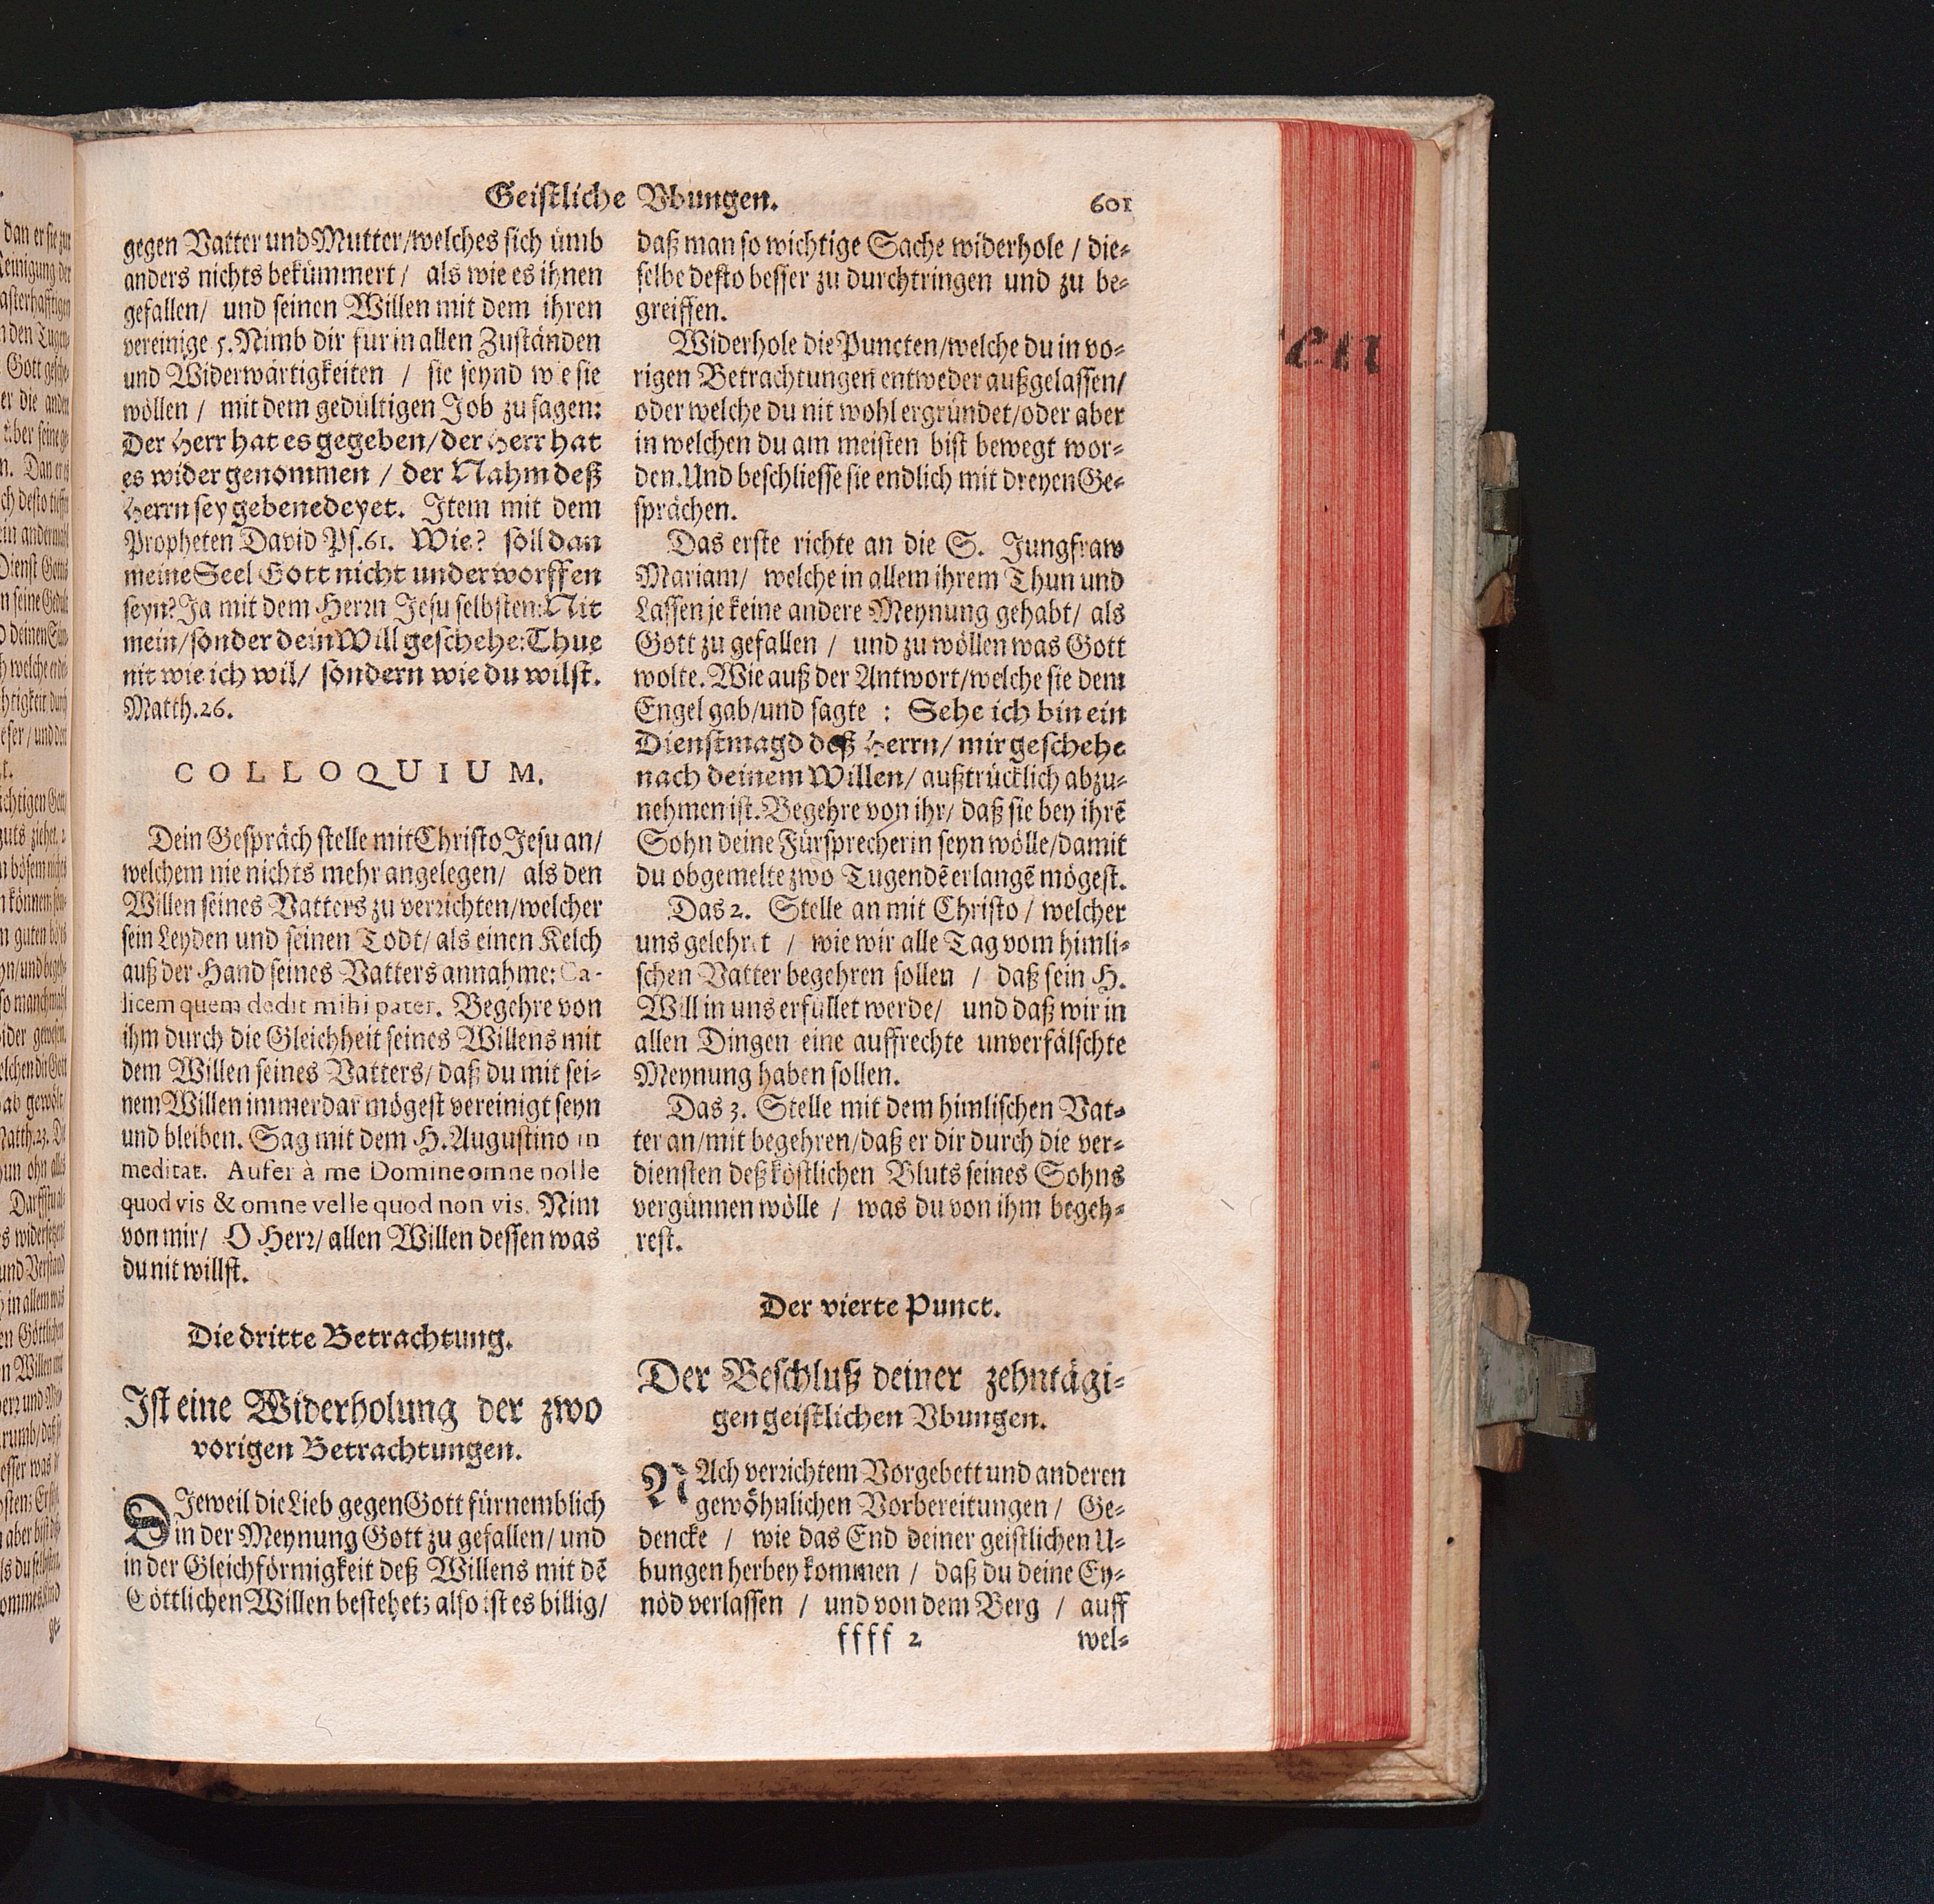 Geistliche Vbungen. 601
gegen Vatter und Mutter/welches sich ümb
anders nichts bekümmert/ als wie es ihnen
gefallen/ und seinen Willen mit dem ihren
vereinige 5. Nimb dir für in allen Zuständen
und Widerwärtigkeiten / sie seynd w e sie
wöllen / mit dem gedültigen Job zu sagen:
Der Herr hat es gegeben/der Herr hat
es wider genommen / der Nahm deß
Herrn sey gebenedeyet. Item mit dem
Propheten David Ps.61. Wie? soll dan
meine Seel Gott nicht underworffen
seyn? Ja mit dem Herrn Jesu selbsten: Nit
mein/sonder dein Will geschehe: Thue
nit wie ich wil/ sondern wie du wilst.
Matth.26.
COLLOQUIUM.
Dein Gespräch stelle mit Christo Jesu an/
welchem nie nichts mehr angelegen/ als den
Willen seines Vatters zu verrichten/welcher
sein Leyden und seinen Todt/ als einen Kelch
auß der Hand seines Vatters annahme: Ca-
licem quem dedit mihi pater. Begehre von
ihm durch die Gleichheit seines Willens mit
dem Willen seines Vatters/ daß du mit sei-
nem Willen immerdar mögest vereinigt seyn
und bleiben. Sag mit dem H. Augustino in
meditat. Aufer à me Domine omne nolle
quod vis & omne velle quod non vis. Nim
von mir/ O Herr/ allen Willen dessen was
du nit willst.
Die dritte Betrachtung.
Ist eine Widerholung der zwo
vorigen Betrachtungen.
DIeweil die Lieb gegen Gott fürnemblich
in der Meynung Gott zu gefallen/ und
in der Gleichförmigkeit deß Willens mit dē
Göttlichen Willen bestehet; also ist es billig/
daß man so wichtige Sache widerhole / die-
selbe desto besser zu durchtringen und zu be-
greiffen.
Widerhole die Puncten/welche du in vo-
rigen Betrachtungen entweder außgelassen/
oder welche du nit wohl ergründet/oder aber
in welchen du am meisten bist bewegt wor-
den. Und beschliesse sie endlich mit dreyen Ge-
sprächen.
Das erste richte an die S. Jungfraw
Mariam/ welche in allem ihrem Thun und
Lassen je keine andere Meynung gehabt/ als
Gott zu gefallen / und zu wöllen was Gott
wolte. Wie auß der Antwort/welche sie dem
Engel gab/und sagte : Sehe ich bin ein
Dienstmagd deß Herrn/ mir geschehe
nach deinem Willen/ außtrücklich abzu-
nehmen ist. Begehre von ihr/ daß sie bey ihrē
Sohn deine Fürsprecherin seyn wölle/damit
du obgemelte zwo Tugendē erlangē mögest.
Das 2. Stelle an mit Christo / welcher
uns gelehret / wie wir alle Tag vom himli-
schen Vatter begehren sollen / daß sein H.
Will in uns erfüllet werde/ und daß wir in
allen Dingen eine auffrechte unverfälschte
Meynung haben sollen.
Das 3. Stelle mit dem himlischen Vat-
ter an/mit begehren/daß er dir durch die ver-
diensten deß köstlichen Bluts seines Sohns
vergünnen wölle / was du von ihm begeh-
rest.
Der vierte Punct.
Der Beschluß deiner zehntägi-
gen geistlichen Vbungen.
NAch verrichtem Vorgebett und anderen
gewöhnlichen Vorbereitungen / Ge-
dencke / wie das End deiner geistlichen U-
bungen herbey kommen / daß du deine Ey-
nöd verlassen / und von dem Berg / auff
ffff 2 wel-